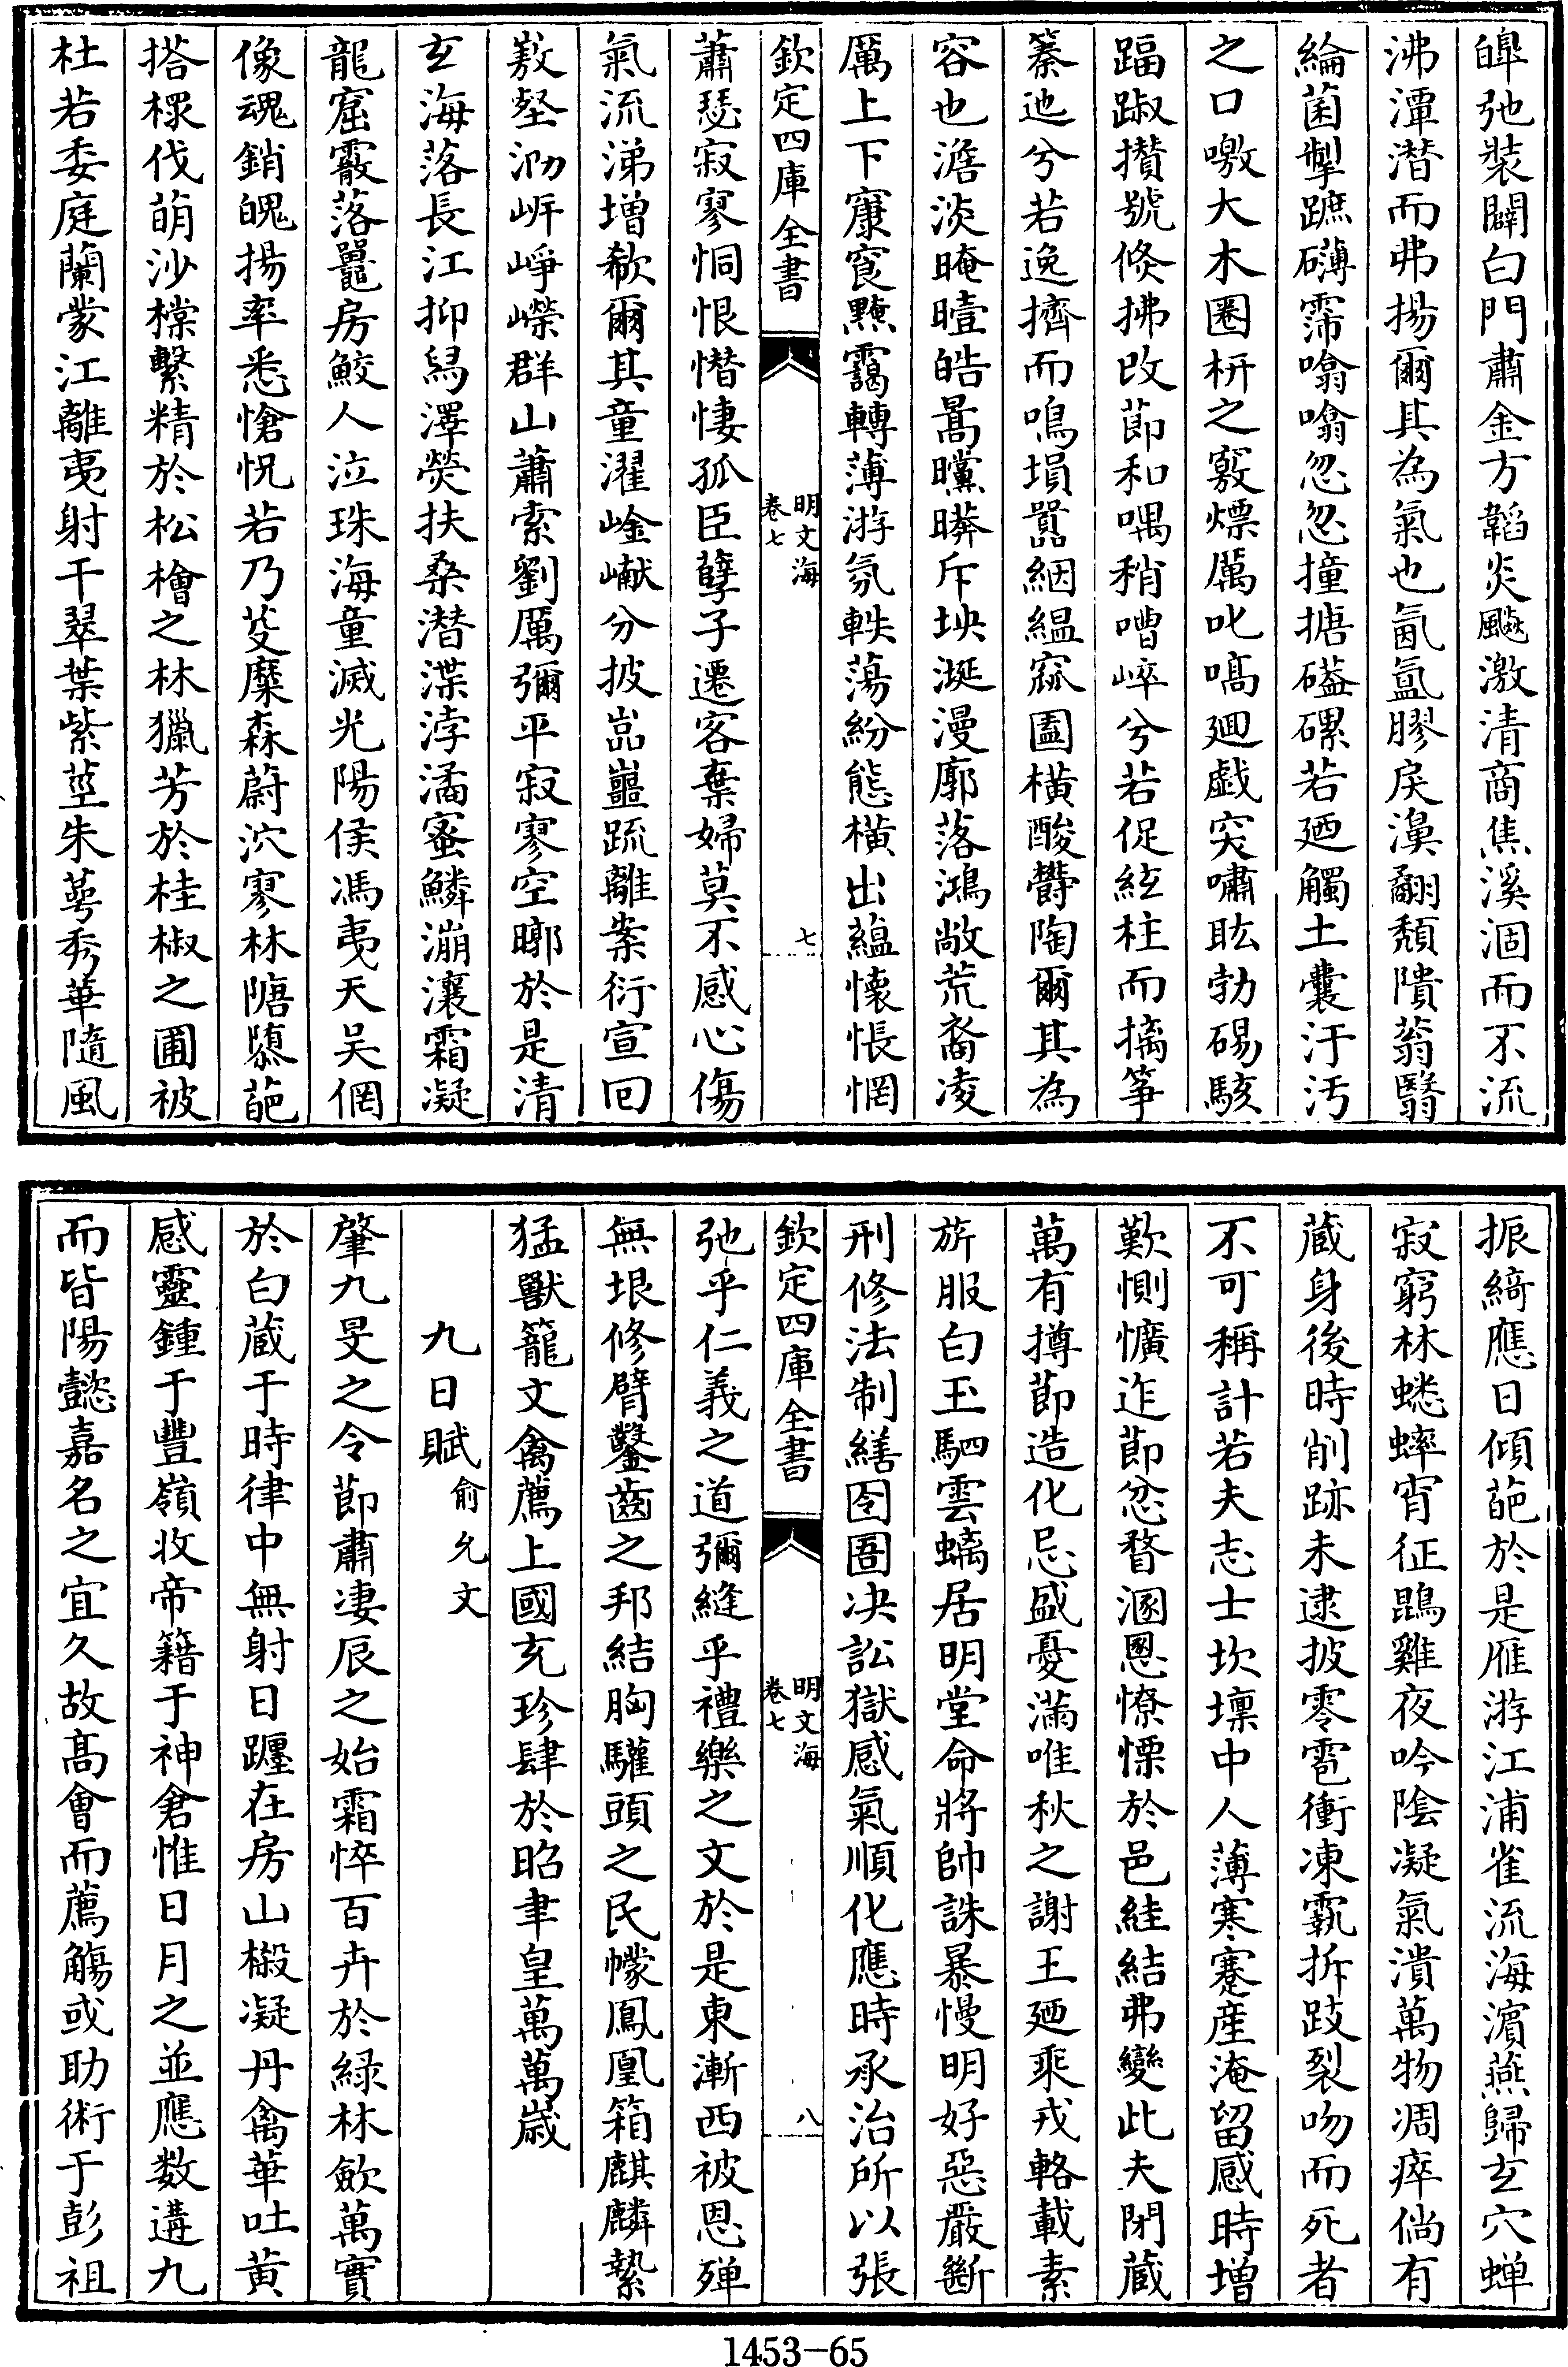 皡弛裝闢白門肅金方韜炎飈激清商焦溪涸而不流
沸潭潛而弗揚爾其為氣也氤氲膠戾潩翮頹隤蓊翳
綸菌掣蹠礴霈噏噏忽忽撞搪礚磥若廼觸土囊汙污
之口噭大木圈枅之竅熛厲叱嗃廻戯突嘯耾勃碭駭
踾踧攅號倐拂改莭和喁稍嘈崪兮若促絃柱而摛筝
纂迆兮若逸擠而鳴塤囂絪緼窳圔横酸欝陶爾其為
容也澹淡晻曀皓暠曭㫰斥坱涎漫廓落鴻敞荒裔凌
厲上下㝩㝗黬靄轉薄游氛軼蕩紛態横出藴懷悵惘
欽定四庫全書
明文海
卷七
七
蕭瑟寂寥恫恨憯悽孤臣孽子遷客棄婦莫不感心傷
氣流涕增欷爾其童濯崯巘分披嵓㠥疏離粊衍宣囘
敥壑泐岍崢嶸群山蕭索劉厲彌平寂寥空曠於是清
玄海落長江抑舄澤熒扶桑潛渫浡潏蜜鱗漰瀼霜凝
龍窟霰落鼉房鮫人泣珠海童滅光陽侯馮夷天吴㒺
像魂銷魄揚率悉愴怳若乃芟穈森蔚泬寥林隌隳葩
搭樏伐萌沙檪繫精於松檜之林獵芳於桂椒之圃被
杜若委庭蘭䝉江離夷射干翠葉紫莖朱蕚秀華隨風
振綺應日傾葩於是雁游江浦雀流海濵燕歸玄穴蟬
寂窮林蟋蟀宵征鵾雞夜吟隂凝氣潰萬物凋瘁倘有
蔵身後時削跡未逮披零雹衝凍霿拆跂裂吻而死者
不可稱計若夫志士坎壈中人薄寒蹇產淹留感時增
歎惻懭迮莭忿瞀溷慁憭慄於邑絓結弗變此夫閉蔵
萬有撙莭造化忌盛憂滿唯秋之謝王廼乘戎輅載素
旂服白玉駟雲螭居明堂命將帥誅暴慢明好惡嚴斷
刑修法制繕囹圄决訟獄感氣順化應時承治所以張
欽定四庫全書
明文海
卷七
八
弛乎仁義之道彌縫乎禮樂之文於是東漸西被恩殫
無垠修臂鑿齒之邦結胸驩頭之民幪鳳凰箱麒麟縶
猛獸籠文禽薦上國充珍肆於昭聿皇萬萬歲
九日賦 俞允文
肇九旻之令莭肅凄辰之始霜悴百卉於緑林歛萬實
於白蔵于時律中無射日躔在房山榝凝丹禽華吐黄
感靈鍾于豐嶺收帝籍于神倉惟日月之並應数遘九
而皆陽懿嘉名之宜久故髙會而薦觴或助術于彭祖
1453-65